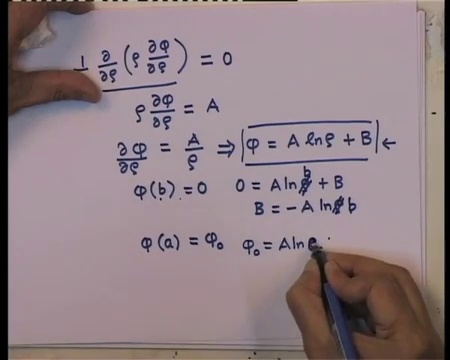 1/ρ ∂/∂ρ (ρ ∂φ/∂ρ) = 0
ρ ∂φ/∂ρ = A
∂φ/∂ρ = A/ρ ⇒ φ = A ln ρ + B ←
φ(b) = 0 0 = A ln b + B
B = - A ln b
φ(a) = φ₀ φ₀ = A ln